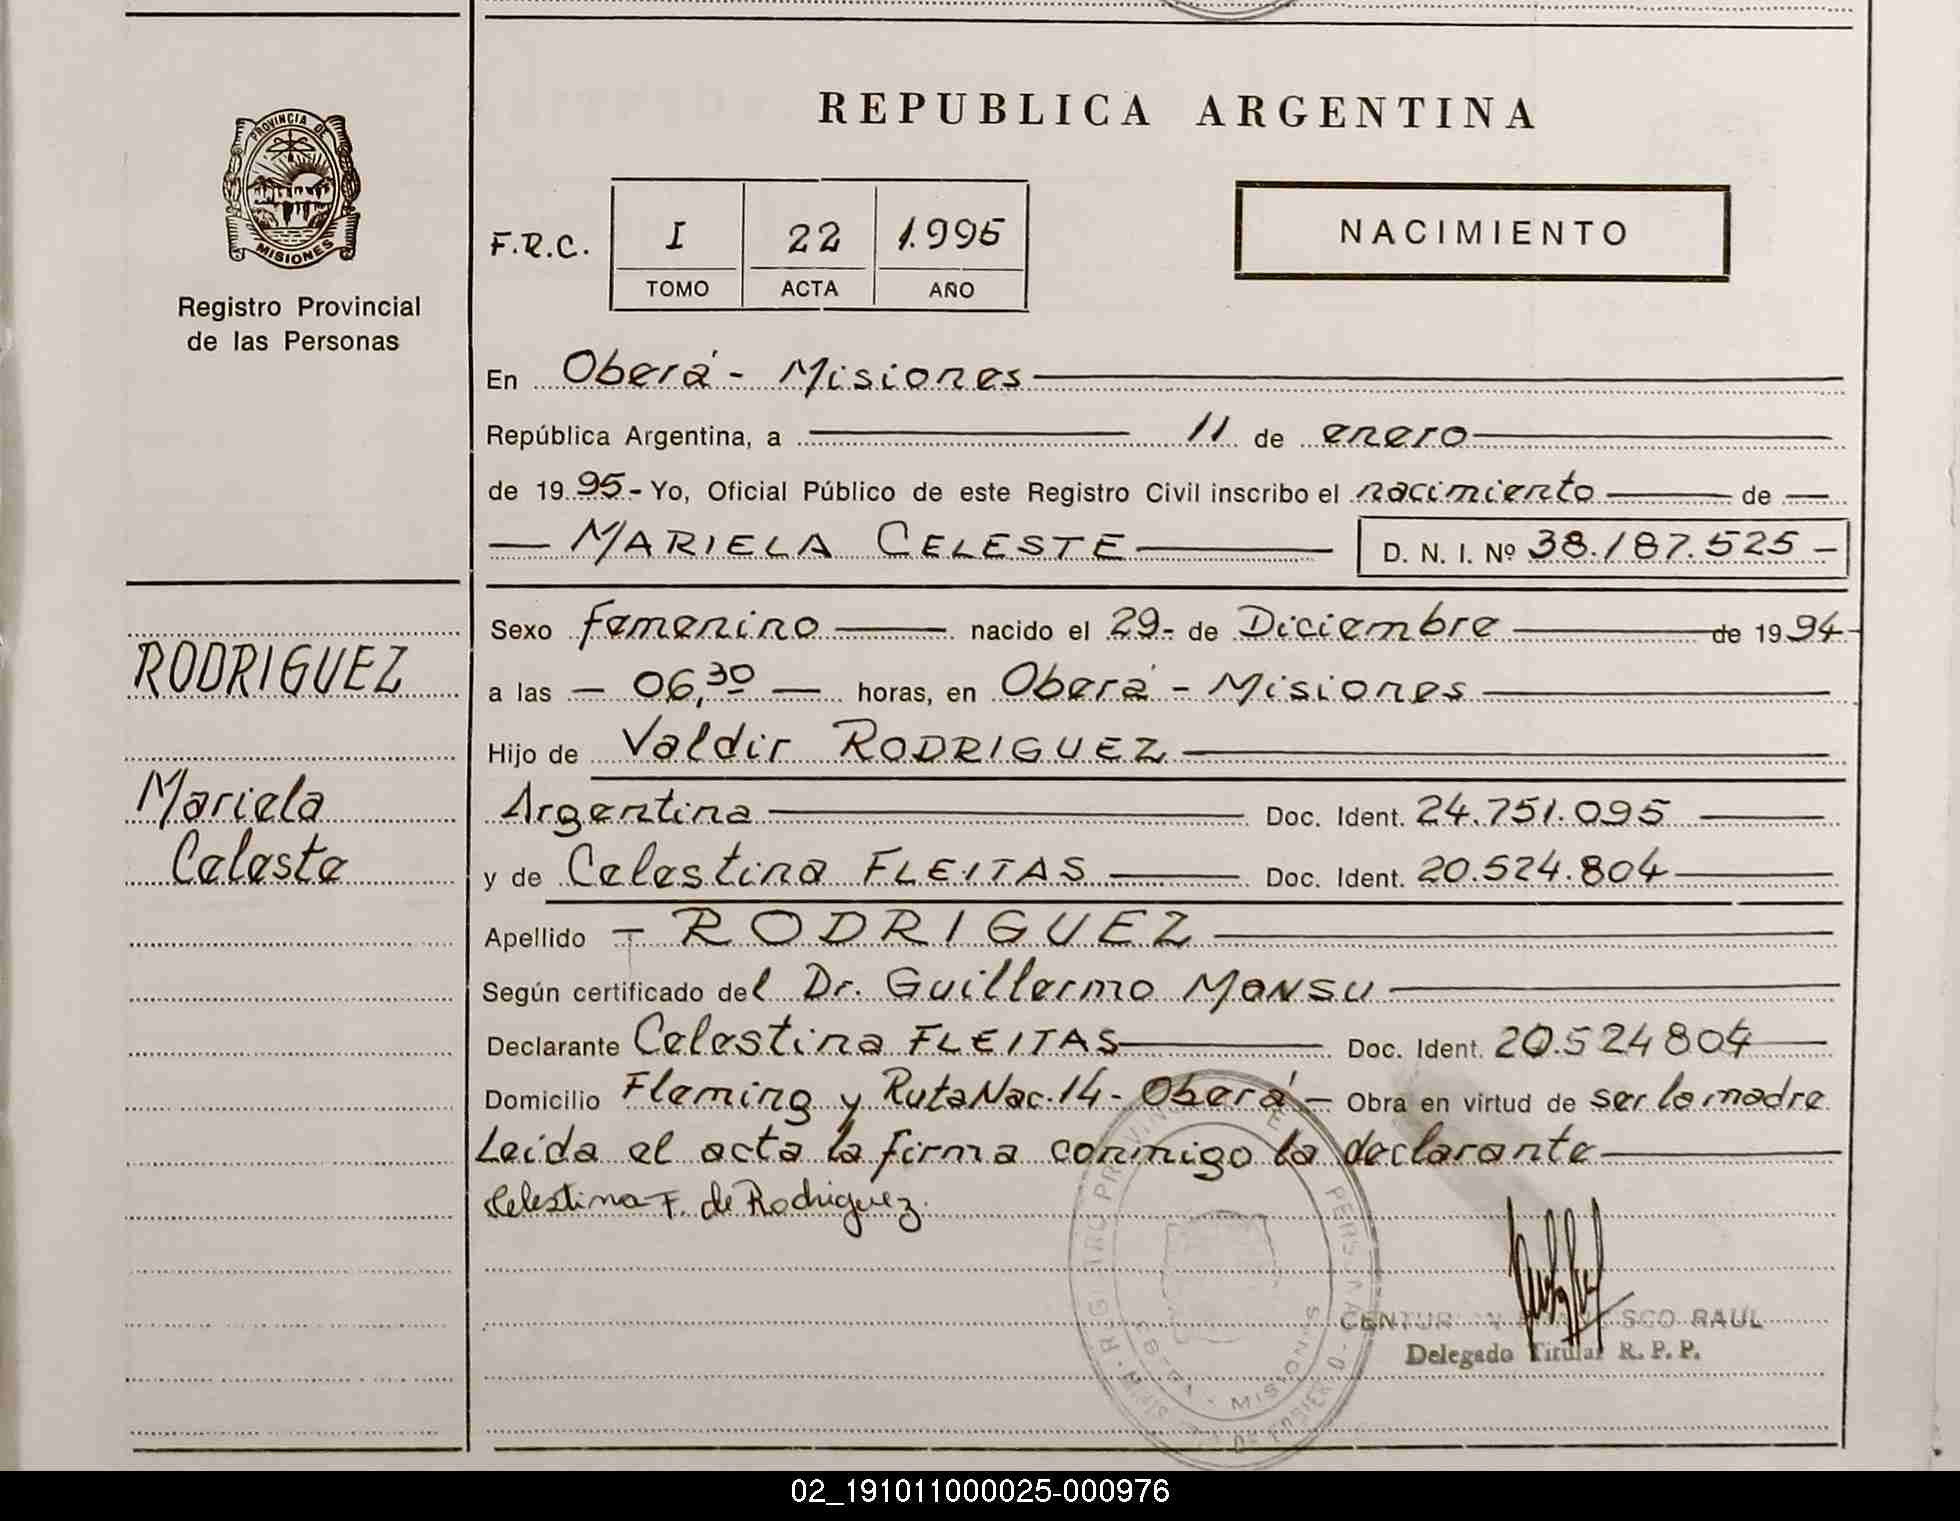 REPUBLICA ARGENTINA
PROVINCIA DE
MISIONES
Registro Provincial
de las Personas
F.R.C.
I 22 1.995
TOMO ACTA AÑO
NACIMIENTO
En Oberá - Misiones
República Argentina, a 11 de enero
de 1995- Yo, Oficial Público de este Registro Civil inscribo el nacimiento de
MARIELA CELESTE D. N. I. Nº 38.187.525
Sexo femenino nacido el 29- de Diciembre de 1994
a las 06,30 horas, en Oberá - Misiones
Hijo de Valdir RODRIGUEZ
Argentina Doc. Ident. 24.751.095
y de Celestina FLEITAS Doc. Ident. 20.524.804
Apellido RODRIGUEZ
Según certificado del Dr. Guillermo MONSU
Declarante Celestina FLEITAS Doc. Ident. 20.524804
Domicilio Fleming y Ruta Nac. 14 - Oberá - Obra en virtud de ser la madre
Leida el acta la firma conmigo la declarante
Celestina F. de Rodriguez.
RAUL
Delegado Titular R. P. P.
MISIONES
RODRIGUEZ
Mariela
Celeste
02_191011000025-000976